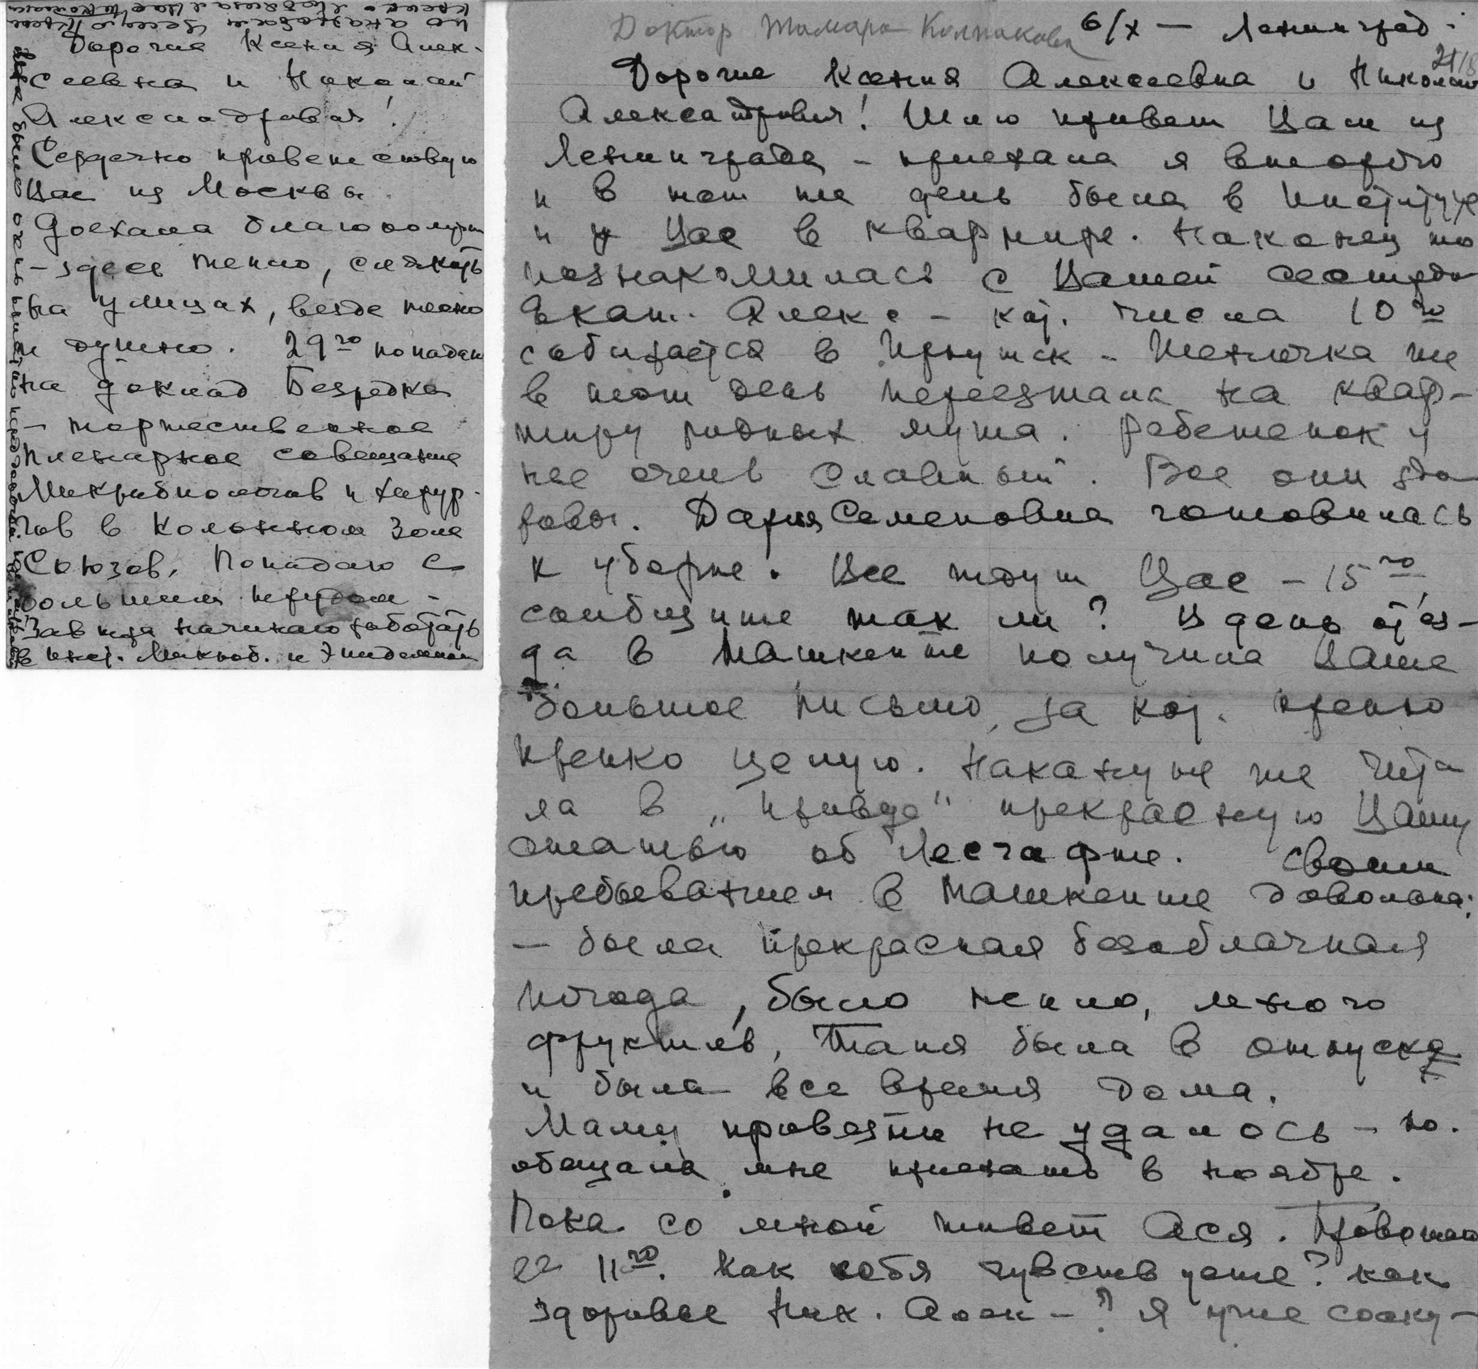 Дорогие Ксения Алек-
сеевна и Николай
Александрович!
Сердечно приветствую
Вас из Москвы.
Доехала благополучно
- здесь тепло, слякоть
на улицах, везде тесно
и душно. 29го попадаю
на доклад Безредка
- торжественное
пленарное совещание
Микробиологов и хирур-
гов в Колонном Зале
Союзов. Попадаю с
большим трудом -
Завтра начинаю работать
в инст. Микроб. и Эпидемиол
Доктор Тамара Колпакова
6/X — Ленинград.
21/8
Дорогие Ксения Алексеевна и Николай
Александрович! Шлю привет Вам из
Ленинграда - приехала я второго
и в тот же день была в Институте
и у Вас в квартире. Наконец то
познакомилась с Вашей сестрой
Екат. Алекс - кот. числа 10го
собирается в Иркутск - Женечка же
в этот день переезжала на квар-
тиру родных мужа. Ребеночек у
нее очень славный. Все они здо-
ровы. Дария Семеновна готовилась
к уборке. Все ждут Вас - 15го,
сообщите так ли? В день отъез-
да в Ташкенте получила Ваше
большое письмо, за кот. крепко
крепко целую. Накануне же чита
ла в "Правде" прекрасную Вашу
статью об Лесгафте. Своим
пребыванием в Ташкенте довольна:
— была прекрасная безоблачная
погода, было тепло, много
фруктов, Таня была в отпуске
и была все время дома.
Маму привезти не удалось - но.
обещала мне приехать в ноябре.
Пока со мной живет Ася. Провожаю
ее 11го. Как себя чувствуете? как
здоровье Ник. Алек - ? Я уже соску-